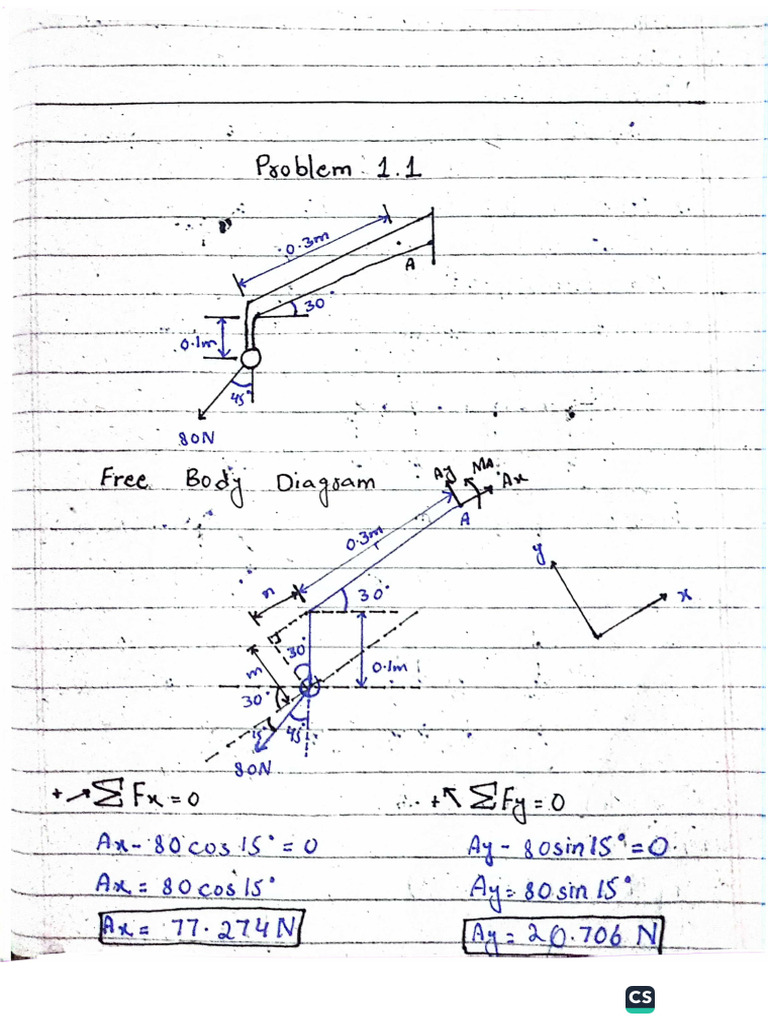 Problem 1.1
0.3m
A
30°
0.1m
45°
80N
Free Body Diagram
Ay MA Ax
A
0.3m
y
n
30°
x
30°
m
0.1m
30°
15° 45°
80N
+→ ΣFx=0
Ax- 80 cos 15° = 0
Ax = 80 cos 15°
Ax = 77.274 N
∴ +↖ ΣFy=0
Ay - 80sin15° = 0
Ay = 80 sin 15°
Ay = 20.706 N
CS